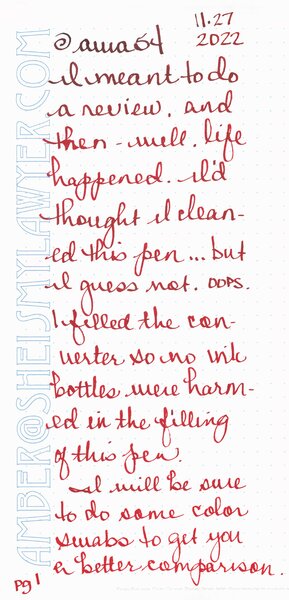 11.27
2022
@awa54
I meant to do
a review. and
then - well. life
happened. I'd
thought I clean-
ed this pen ... but
I guess not. OOPS.
I filled the con-
verter so no ink
bottles were harm-
ed in the filling
of this pen.
I will be sure
to do some color
swabs to get you
a better comparison.
pg 1
AMBER@SHEISMYLAWYER.COM